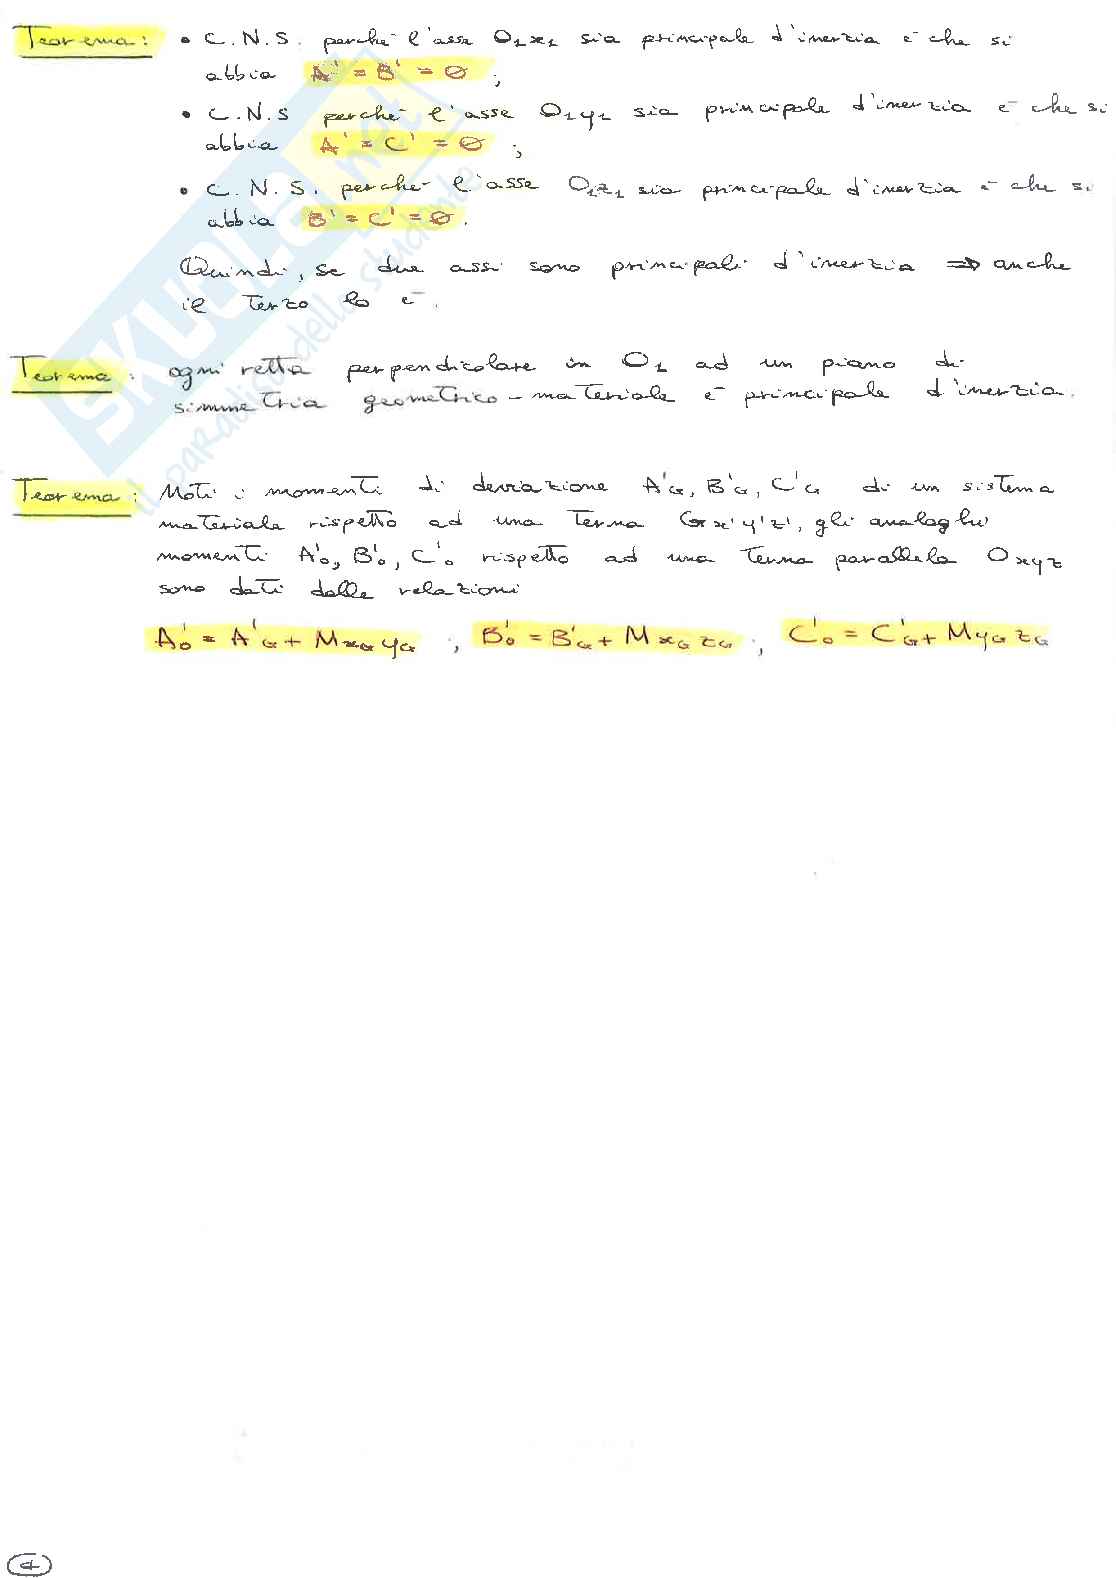 Teorema: • C.N.S. perché l'asse O₁x₁ sia principale d'inerzia è che si
abbia A' = B' = 0 ;
• C.N.S perché l'asse O₁y₁ sia principale d'inerzia è che si
abbia A' = C' = 0 ;
• C.N.S. perché l'asse O₁z₁ sia principale d'inerzia è che si
abbia B' = C' = 0.
Quindi, se due assi sono principali d'inerzia ⇒ anche
il terzo lo è.
Teorema: ogni retta perpendicolare in O₁ ad un piano di
simmetria geometrico-materiale è principale d'inerzia.
Teorema: Noti i momenti di deviazione A'G, B'G, C'G di un sistema
materiale rispetto ad una terna Gx'y'z', gli analoghi
momenti A'o, B'o, C'o rispetto ad una terna parallela Oxyz
sono dati dalle relazioni
A'o = A'G + MxGyG ; B'o = B'G + MxGzG ; C'o = C'G + MyGzG
4
SKUOLA.net
il paradiso dello studente